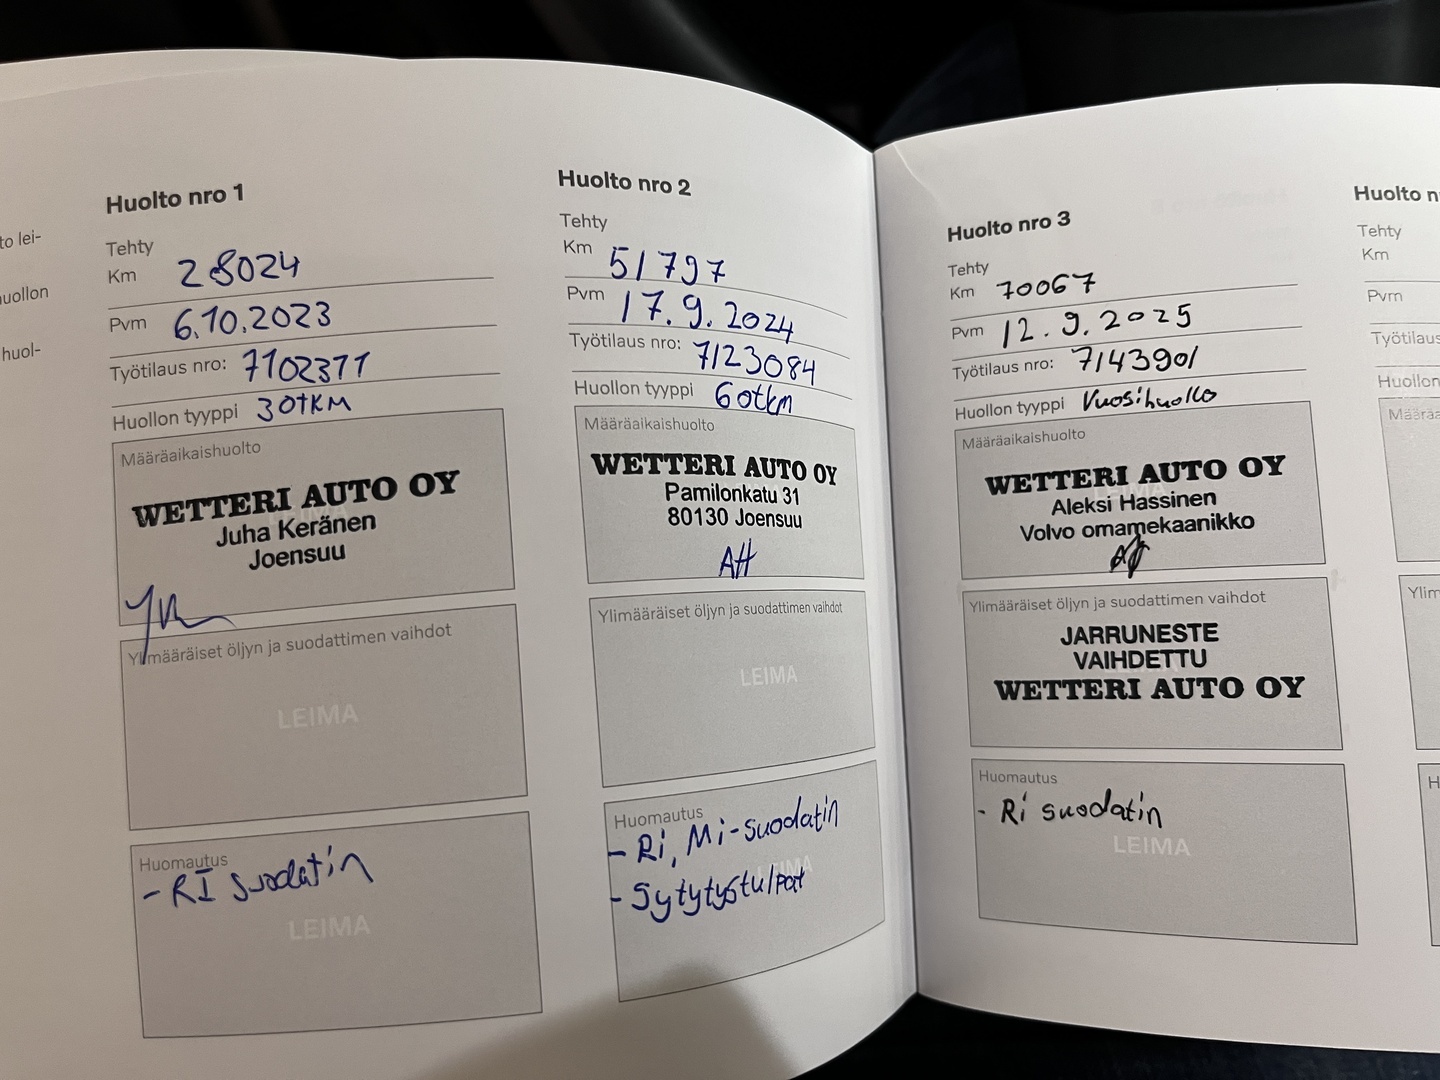 to lei-
uollon
huol-
Huolto nro 1
Tehty
Km 28024
Pvm 6.10.2023
Työtilaus nro: 7102371
Huollon tyyppi 30TKM
Määräaikaishuolto
WETTERI AUTO OY
Juha Keränen
Joensuu
Ylimääräiset öljyn ja suodattimen vaihdot
LEIMA
Huomautus
- RI suodatin
LEIMA
Huolto nro 2
Tehty
Km 51797
Pvm 17.9.2024
Työtilaus nro: 7123084
Huollon tyyppi 60tkm
Määräaikaishuolto
WETTERI AUTO OY
Pamilonkatu 31
80130 Joensuu
AH
Ylimääräiset öljyn ja suodattimen vaihdot
LEIMA
Huomautus
- Ri, Mi-suodatin
- Sytytystulpat
Huolto nro 3
Tehty
Km 70067
Pvm 12.9.2025
Työtilaus nro: 7143901
Huollon tyyppi Vuosihuolto
Määräaikaishuolto
WETTERI AUTO OY
Aleksi Hassinen
Volvo omamekaanikko
Ylimääräiset öljyn ja suodattimen vaihdot
JARRUNESTE
VAIHDETTU
WETTERI AUTO OY
Huomautus
- Ri suodatin
LEIMA
Huolto n
Tehty
Km
Pvm
Työtilaus
Huollon
Määräa
Ylim
H